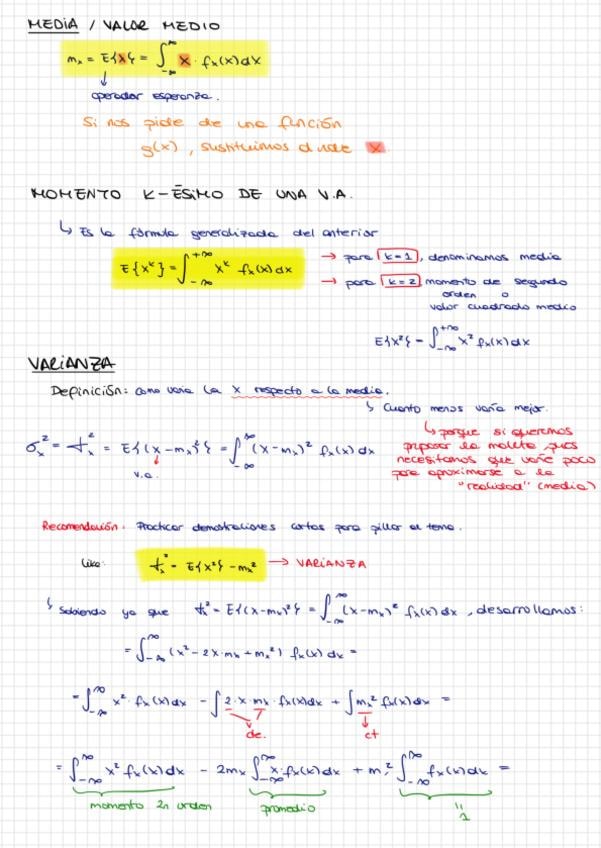 MEDIA / VALOR MEDIO
mₓ = E{X} = ∫_{-∞}^{∞} x · fₓ(x) dx
operador esperanza.
Si nos pide de una función
g(x), sustituimos donde x
MOMENTO K-ÉSIMO DE UNA V.A.
↳ Es la fórmula generalizada del anterior
E{x^k} = ∫_{-∞}^{+∞} x^k fₓ(x) dx
→ para k=1, denominamos media
→ para k=2 momento de segundo
orden o
valor cuadrado medio
E{x²} = ∫_{-∞}^{+∞} x² fₓ(x) dx
VARIANZA
Definición: como varía la X respecto a la media.
↳ Cuanto menos varía mejor.
↳ porque si queremos
pues
necesitamos que varíe poco
para aproximarse a la
"realidad" (media)
σₓ² = tₓ² = E{(x-mₓ)²} = ∫_{-∞}^{∞} (x-mₓ)² fₓ(x) dx
v.a.
Recomendación: Practicar demostraciones cortas para pillar el tema.
Like: tₓ² = E{x²} - mₓ² → VARIANZA
↳ Sabiendo ya que tₓ² = E{(x-mₓ)²} = ∫_{-∞}^{∞} (x-mₓ)² fₓ(x) dx, desarrollamos:
= ∫_{-∞}^{∞} (x² - 2x·mₓ + mₓ²) fₓ(x) dx =
= ∫_{-∞}^{∞} x² · fₓ(x) dx - ∫ 2·x·mₓ·fₓ(x) dx + ∫ mₓ² fₓ(x) dx =
ct
= ∫_{-∞}^{∞} x² fₓ(x) dx - 2mₓ ∫_{-∞}^{∞} x·fₓ(x) dx + mₓ² ∫_{-∞}^{∞} fₓ(x) dx =
momento 2n orden promedio 1